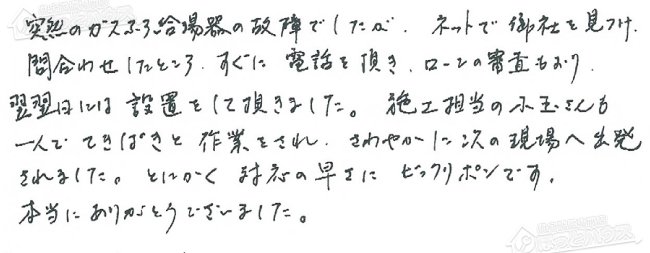 突然のガスふろ給湯器の故障でしたが、ネットで御社を見つけ、
問合わせしたところ、すぐに電話を頂き、ローンの審査もあり、
翌翌日には設置をして頂きました。施工担当の小玉さんも
一人でてきぱきと作業をされ、さわやかに次の現場へ出発
されました。とにかく対応の早さにビックリポンです。
本当にありがとうございました。